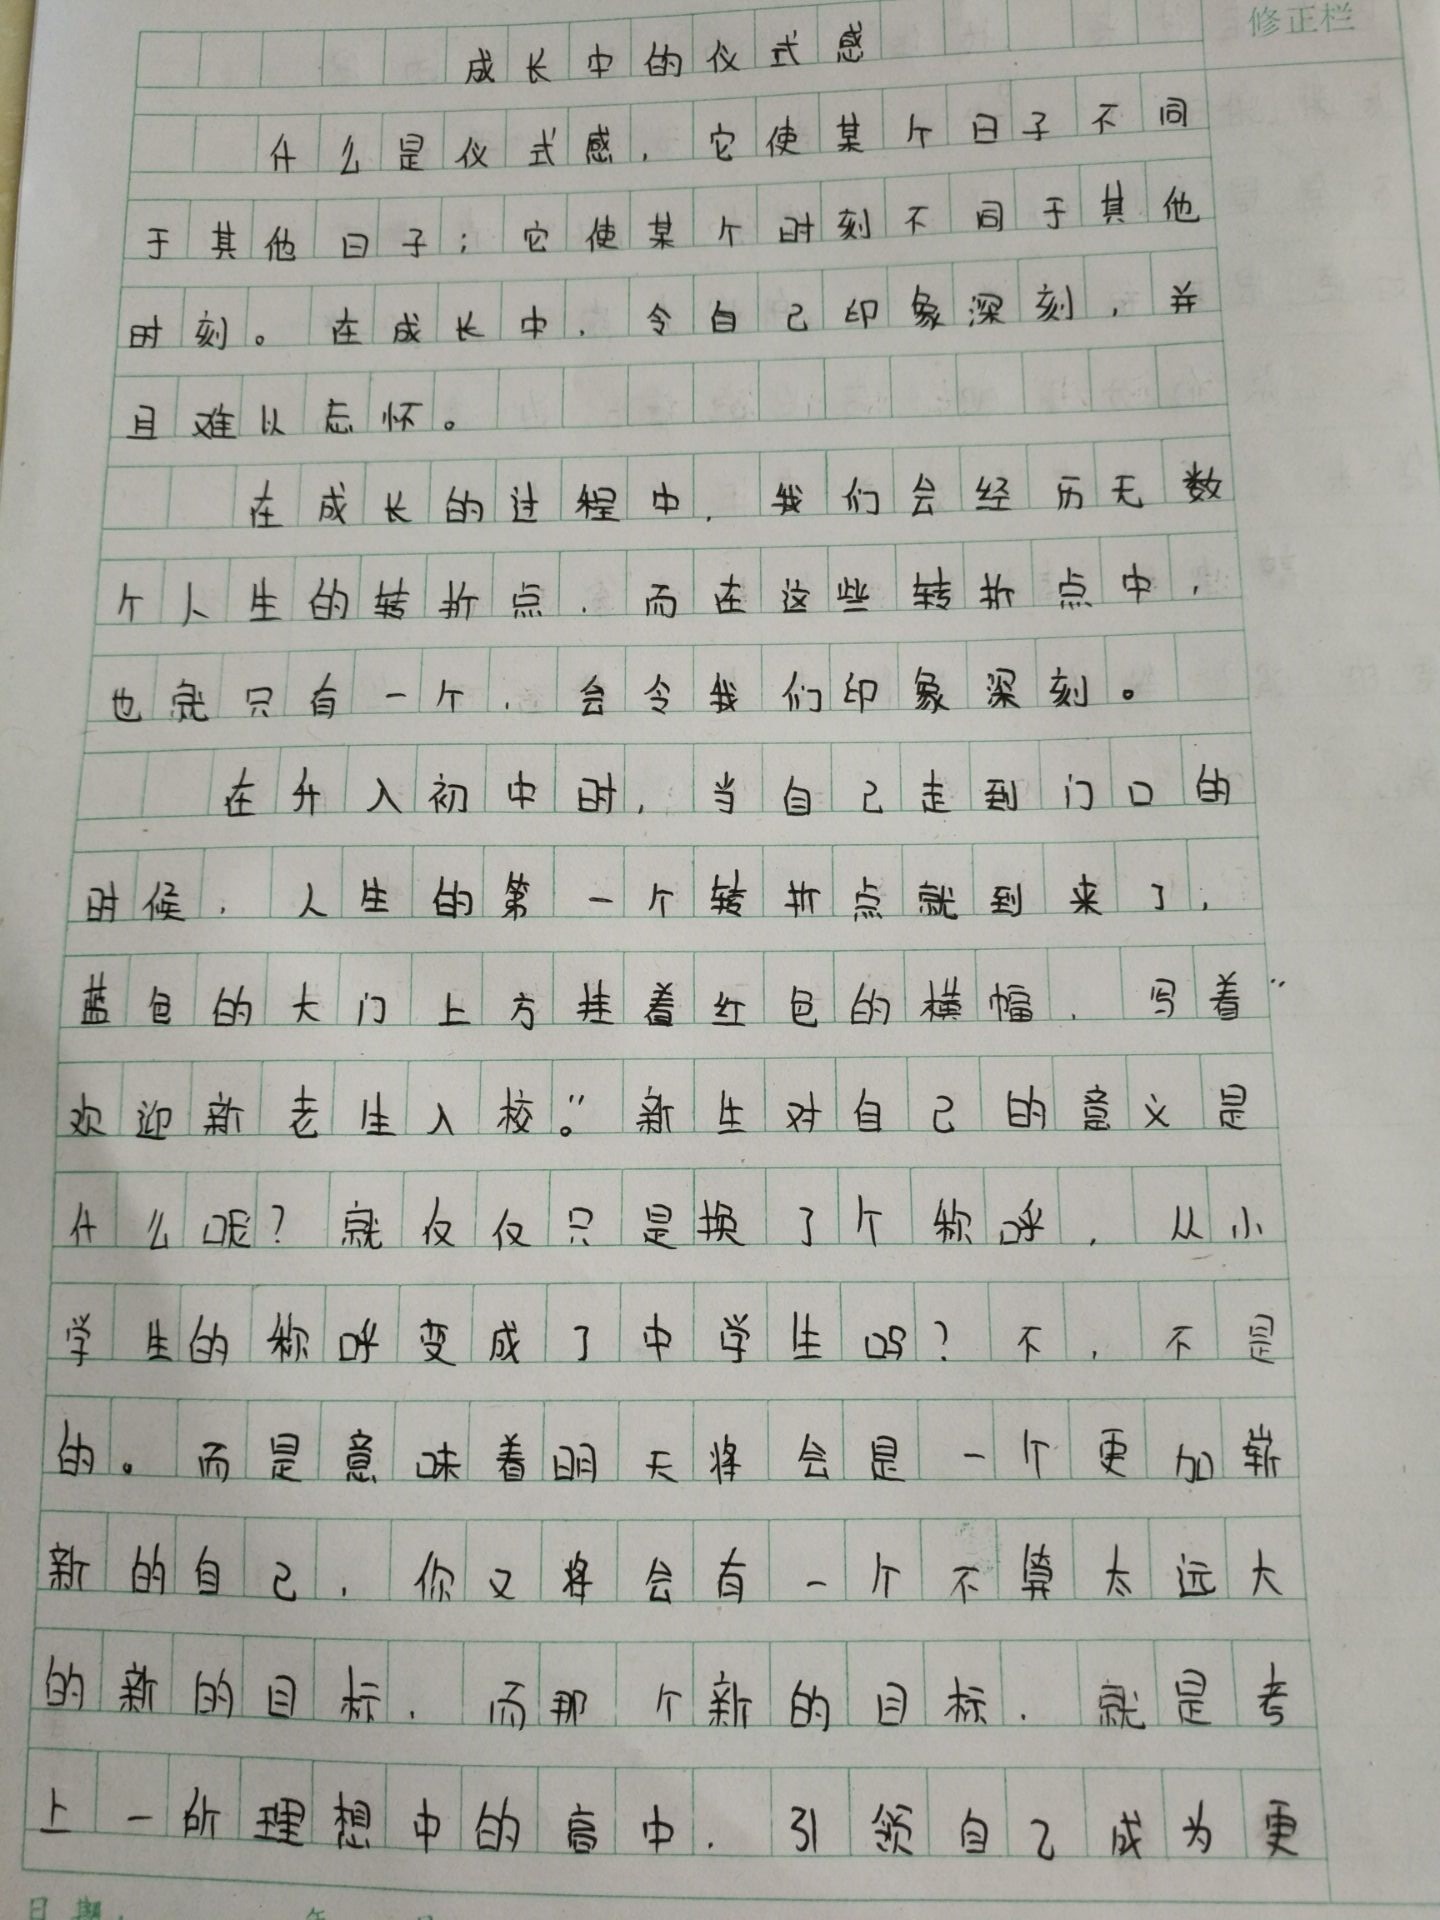 修正栏
成长中的仪式感
什么是仪式感，它使某个日子不同
于其他日子；它使某个时刻不同于其他
时刻。在成长中，令自己印象深刻，并
且难以忘怀。
在成长的过程中，我们会经历无数
个人生的转折点，而在这些转折点中，
也就只有一个，会令我们印象深刻。
在升入初中时，当自己走到门口的
时候，人生的第一个转折点就到来了，
蓝色的大门上方挂着红色的横幅，写着“
欢迎新老生入校。”新生对自己的意义是
什么呢？就仅仅只是换了个称呼，从小
学生的称呼变成了中学生吗？不，不是
的。而是意味着明天将会是一个更加崭
新的自己，你又将会有一个不算太远大
的新的目标，而那个新的目标，就是考
上一所理想中的高中，引领自己成为更
日期： 年 月